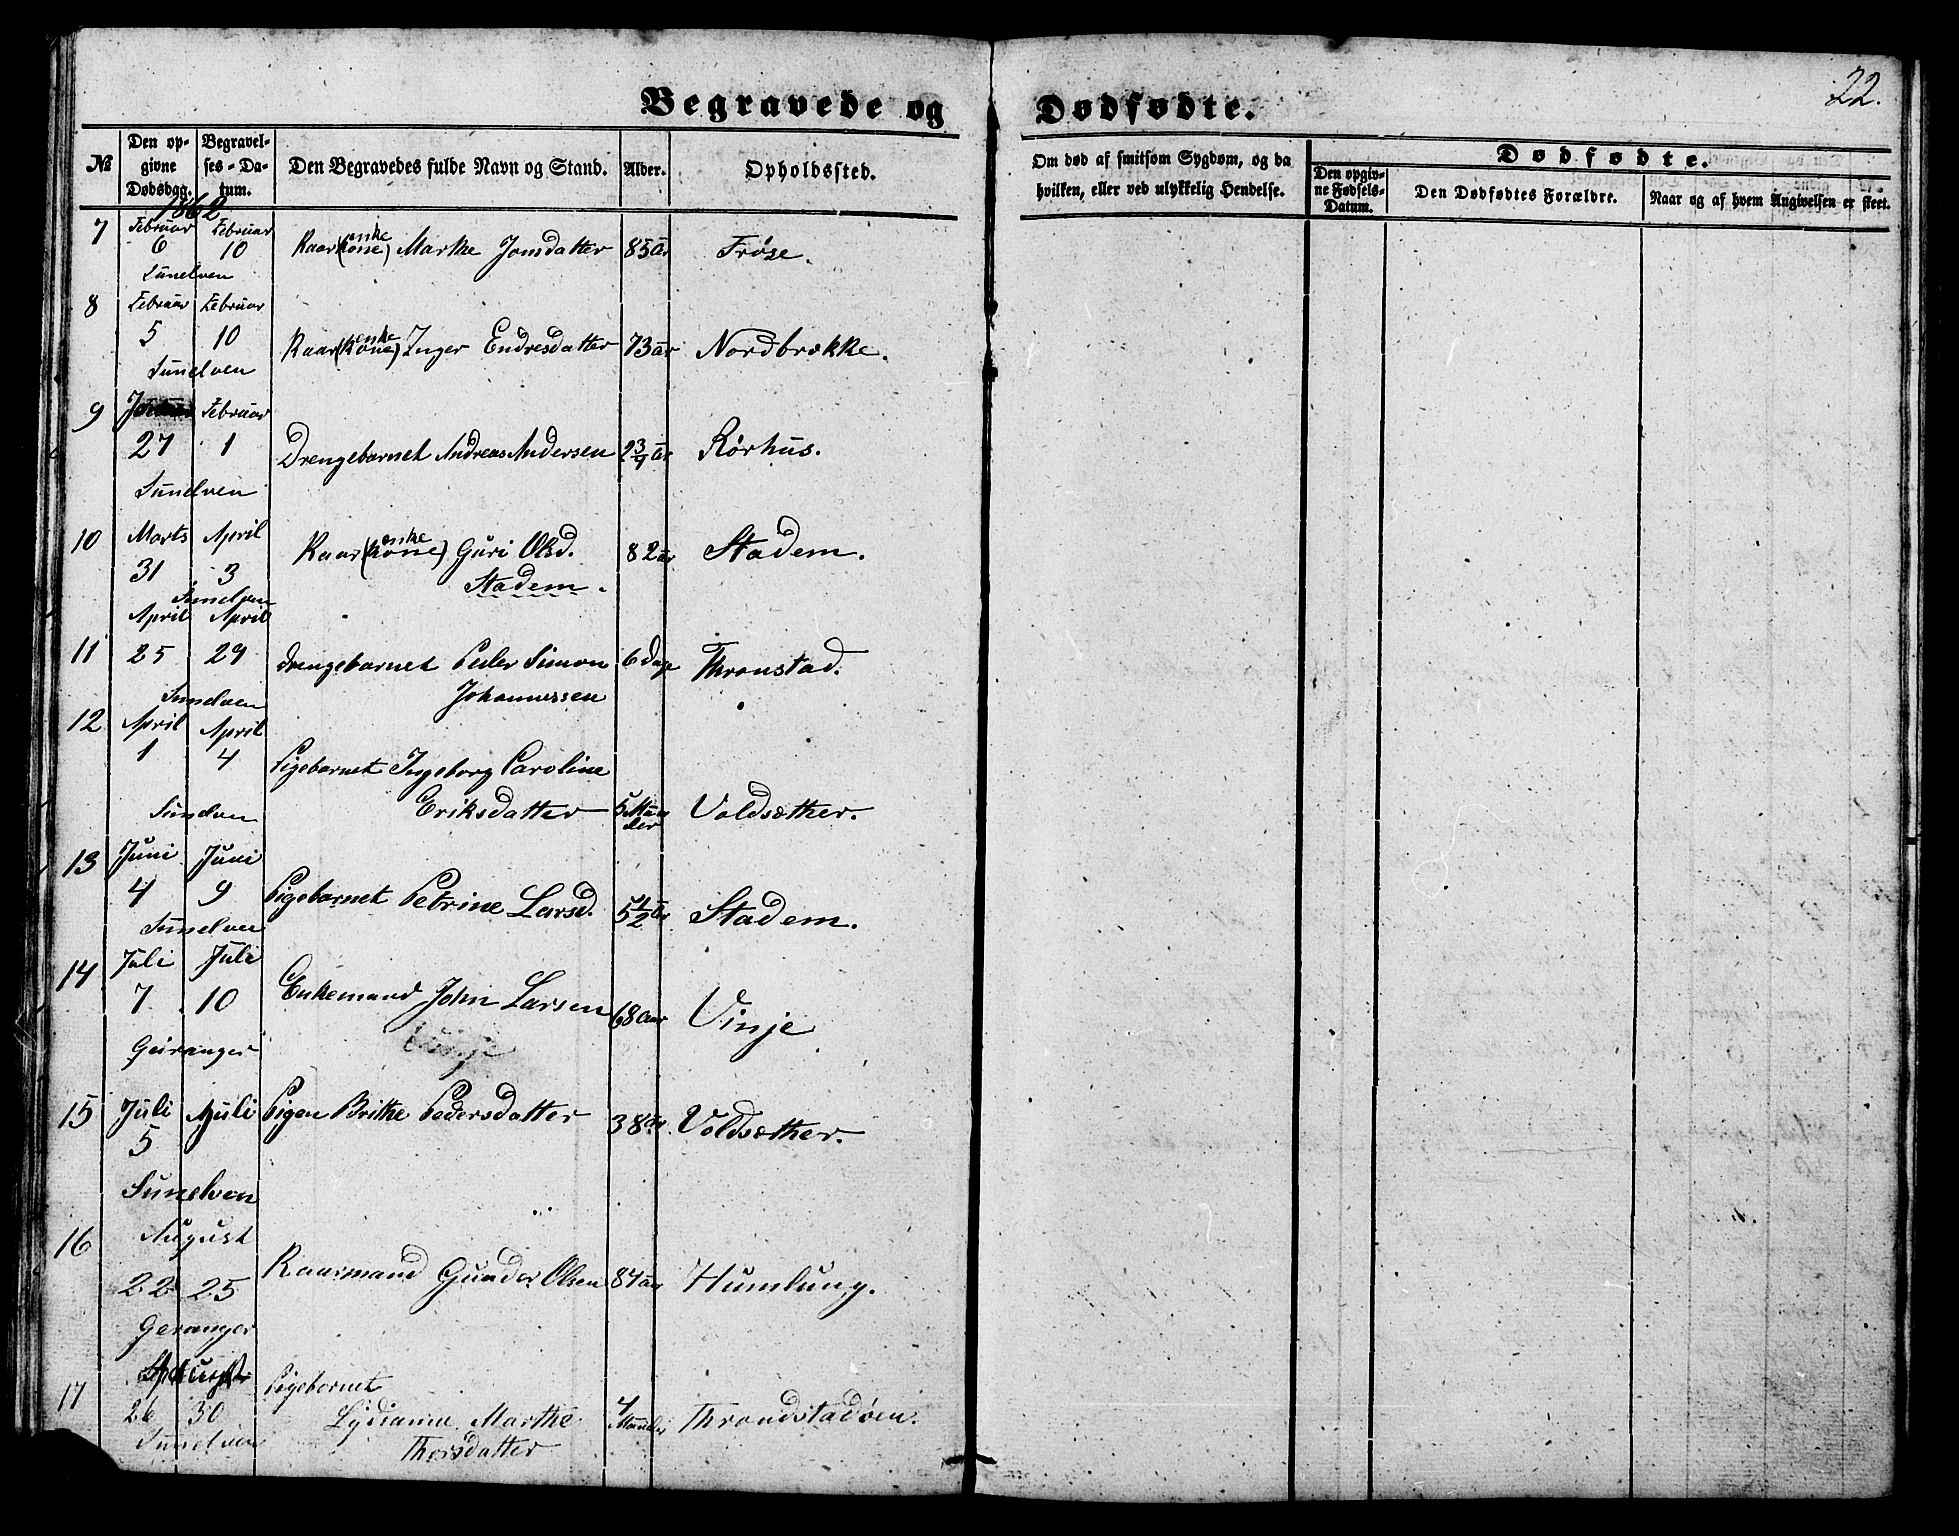 22.
Begravede og Dødfødte.
№
Den opgivne Dødsdag.
Begravelses-Datum.
Den Begravedes fulde Navn og Stand.
Alder.
Opholdssted.
Om død af smitsom Sygdom, og da hvilken, eller ved ulykkelig Hendelse.
Dødfødte.
Den opgivne Fødsels-Datum.
Den Dødfødtes Forældre.
Naar og af hvem Angivelsen er skeet.
1862
7 Februar 6 Februar 10 Kaar(kone) enke Marthe Jonsdatter 85 år Frøse.
Sunelven
8 Februar 5 Februar 10 Kaar(kone) enke Inger Endresdatter 73 år Nordbrække.
Sunelven
9 27 Februar 1 Drengebarnet Andreas Andersen år Rørhus.
Sunelven
10 Marts 31 April 3 Kaar(kone) enke Guri Olsd. 82 år Stadem.
Stadem.
Sunelven
11 April 25 April 29 Drengebarnet Peder Simon 6 Dage Thronstad.
Johannessen
Sunelven
12 April 1 April 4 Pigebarnet Ingeborg Caroline
Eriksdatter 5 Måneder Voldsæther.
Sunelven
13 Juni 4 Juni 9 Pigebarnet Petrine Larsd. 5 1/2 år Stadem.
Sunelven
14 Juli 7 Juli 10 Enkemand John Larsen 68 aar Vinje
Vinje
Geiranger
15 Juli 5 Juli Pigen Brithe Pedersdatter 38 år. Voldsæther.
Sunelven
16 August 22 25 Kaarmand Gunder Olsen 84 år Humlung.
Geranger
17 26 30 Pigebarnet
Lydianne Marthe 4 Måneder Throndstadøen.
Thorsdatter
Sunelven